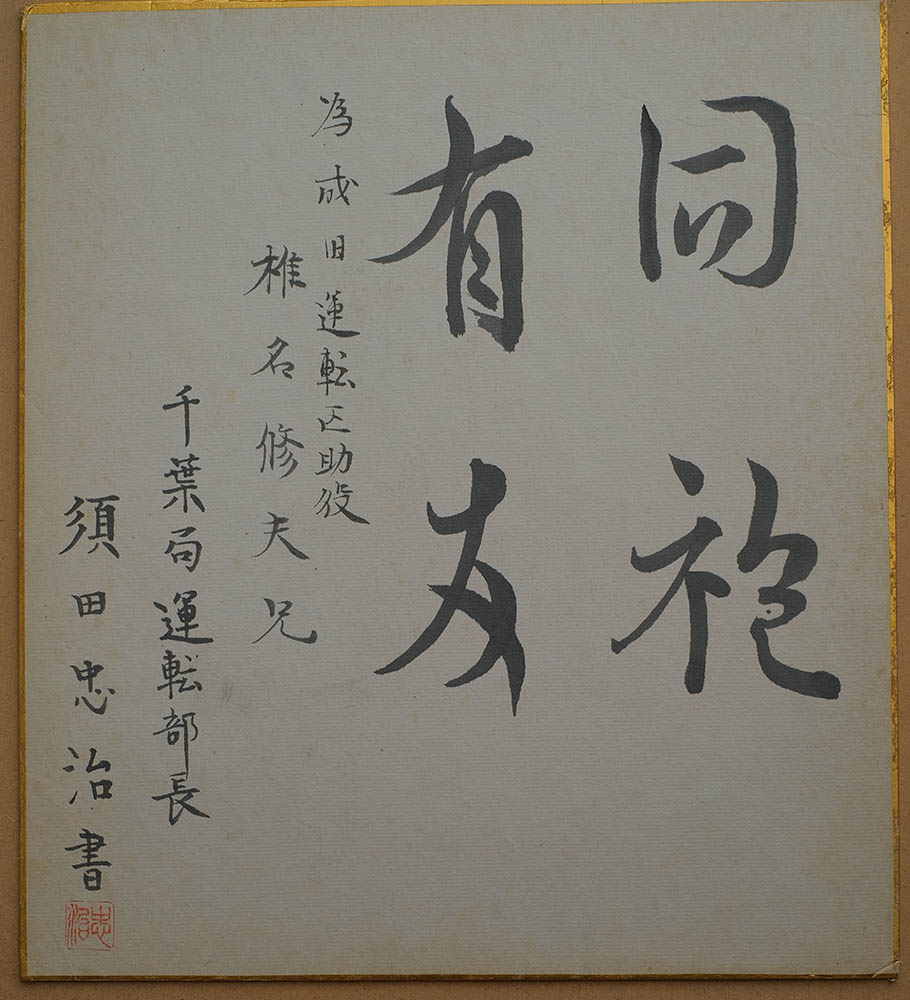 同袍
有友
為成田運転区助役
椎名修夫兄
千葉局運転部長
須田忠治書
忠治